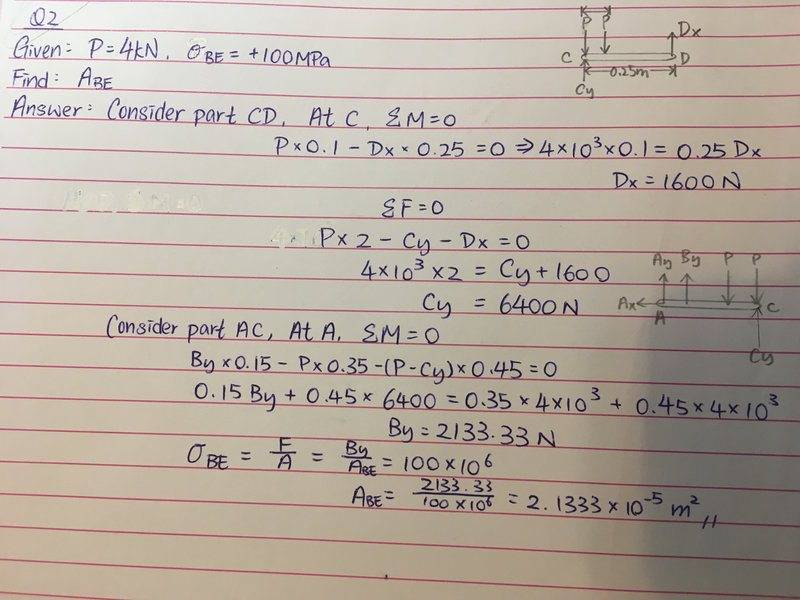 Q2
Given: P = 4kN, σBE = +100MPa
Find: ABE
Answer: Consider part CD, At C, ΣM=0
P×0.1 - Dx × 0.25 = 0 ⇒ 4×10³×0.1 = 0.25 Dx
Dx = 1600 N
ΣF=0
P×2 - Cy - Dx = 0
4×10³ ×2 = Cy + 1600
Cy = 6400 N
Consider part AC, At A, ΣM=0
By×0.15 - P×0.35 -(P-Cy)×0.45=0
0.15 By + 0.45× 6400 = 0.35 × 4×10³ + 0.45×4×10³
By = 2133.33 N
σBE = F/A = By/ABE = 100×10⁶
ABE = 2133.33/100×10⁶ = 2.1333 × 10⁻⁵ m²,,
P P
Dx
C D
0.25m
Cy
Ay By P P
Ax C
A
Cy